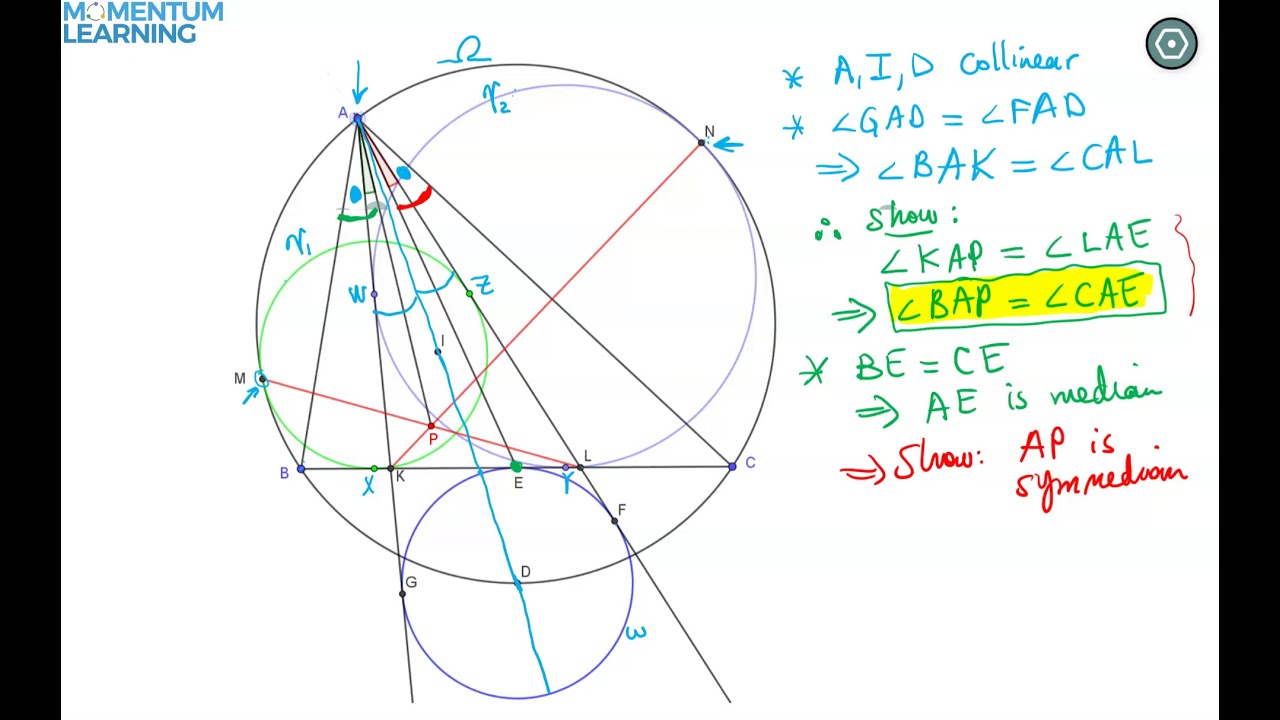 MOMENTUM
LEARNING
Ω
γ₂
A
N
θ
θ
γ₁
W
Z
I
M
P
B
X
K
E
Y
L
C
F
G
D
ω
* A, I, D collinear
* ∠GAD = ∠FAD
⇒ ∠BAK = ∠CAL
∴ show:
∠KAP = ∠LAE
⇒ ∠BAP = ∠CAE
* BE = CE
⇒ AE is median
⇒ Show: AP is
symmedian